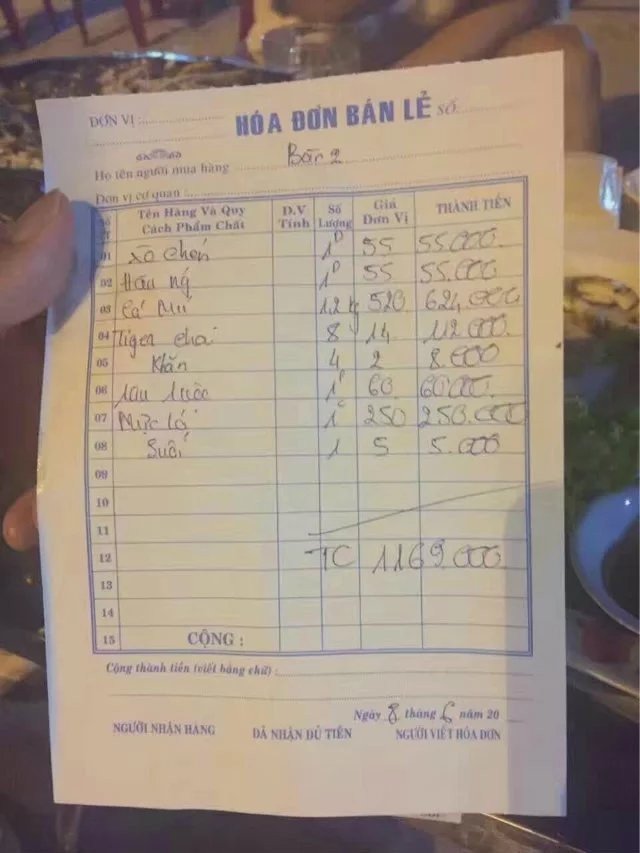 ĐƠN VỊ : HÓA ĐƠN BÁN LẺ SỐ
Họ tên người mua hàng Bàn 2
Đơn vị cơ quan :
Số TT Tên Hàng Và Quy Cách Phẩm Chất Đ.V Tính Số Lượng Giá Đơn Vị THÀNH TIỀN
01 1Đ 55 55.000
02 Hàu ng 1Đ 55 55.000
03 Cá Mú 1,2 kg 520 624.000
04 Tiger chai 8 14 112.000
05 Khăn 4 2 8.000
06 rau luộc 1 60 60.000
07 Mực lá 1 250 250.000
08 Suối 1 5 5.000
09
10
11
12 TC 1169.000
13
14
15 CỘNG :
Cộng thành tiền (viết bằng chữ) :
Ngày 8 tháng 6 năm 20
NGƯỜI NHẬN HÀNG ĐÃ NHẬN ĐỦ TIỀN NGƯỜI VIẾT HÓA ĐƠN